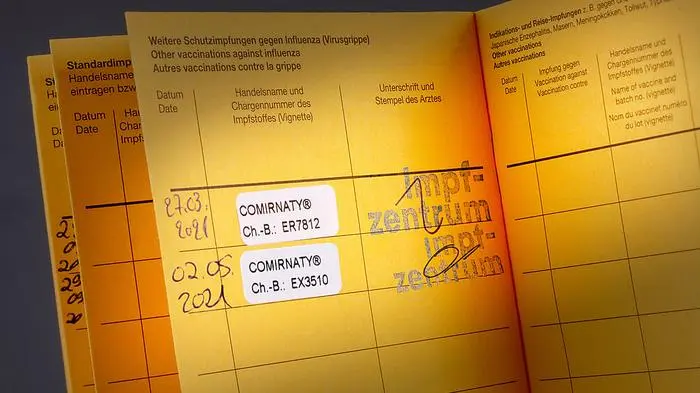 Standardimp
Handelsname
eintragen bzw
Datum
Date
Weitere Schutzimpfungen gegen Influenza (Virusgrippe)
Other vaccinations against influenza
Autres vaccinations contre la grippe
Datum
Date
Handelsname und
Chargennummer des
Impfstoffes (Vignette)
Unterschrift und
Stempel des Arztes
27.03.
2021
COMIRNATY®
Ch.-B.: ER7812
impf-
zentrum
02.05.
2021
COMIRNATY®
Ch.-B.: EX3510
impf-
zentrum
Indikations- und Reise-Impfungen z. B. gegen
Japanische Enzephalitis, Masern, Meningokokken, Tollwut,
Other vaccinations
Autres vaccinations
Datum
Date
Impfung gegen
Vaccination against
Vaccination contre
Handelsname und
Chargennummer des
Impfstoffes (Vignette)
Name of vaccine and
batch no. (Vignette)
Nom du vaccinet numéro
du lot (vignette)